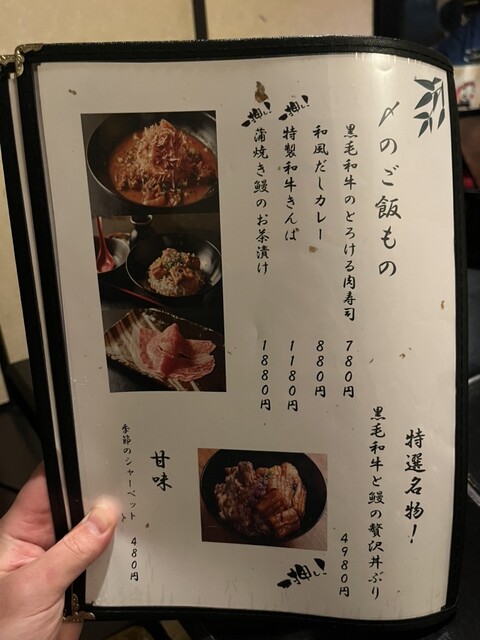 〆のご飯もの
黒毛和牛のとろける肉寿司 780円
和風だしカレー 880円
押し! 特製和牛きんぱ 1180円
押し! 蒲焼き鰻のお茶漬け 1880円
特選名物!
黒毛和牛と鰻の贅沢丼ぶり 4980円
押し!
甘味
季節のシャーベット 480円